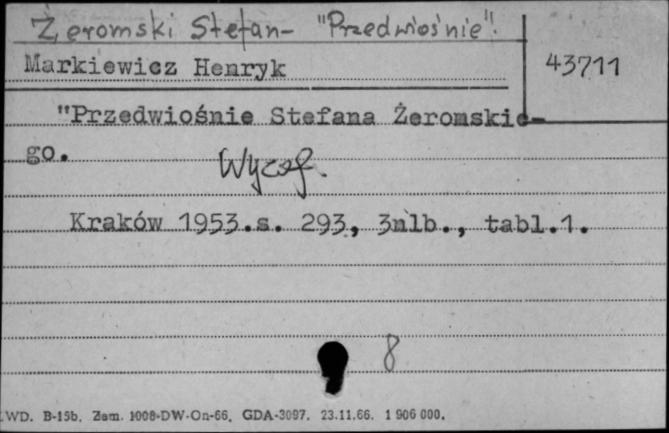 Żeromski Stefan- "Przedwiośnie".
Markiewicz Henryk
43711
"Przedwiośnie Stefana Żeromskie-
go.
Wycof.
Kraków 1953.s. 293, 3nlb., tabl.1.
8
WD. B-15b. Zam. 1008-DW-On-66. GDA-3097. 23.11.66. 1 906 000.